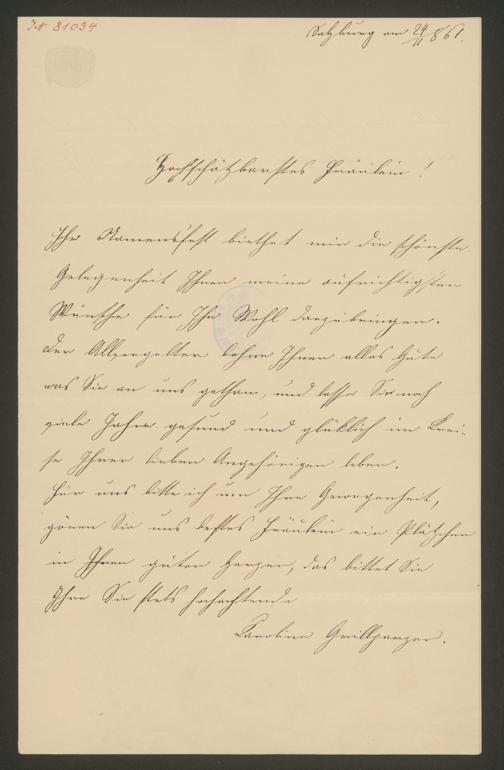 IN 81034
Salzburg am 29/11 861.
Hochschätzbarstes Fräulein!
Ihr Namensfest biethet mir die schönste
Gelegenheit Ihnen meine aufrichtigsten
Wünsche für Ihr Wohl darzubringen.
Der Allvergelter lohne Ihnen alles Gute
was Sie an uns gethan, und lasse Sie noch
viele Jahre gesund und glüklich im Krei-
se Ihrer lieben Angehörigen leben.
Für uns bitte ich um Ihre Gewogenheit,
gönen Sie uns bestes Fräulein ein Plätzchen
in Ihren guten Herzen, das bittet Sie
Ihre Sie stets hochachtende
Caroline Grillparzer.